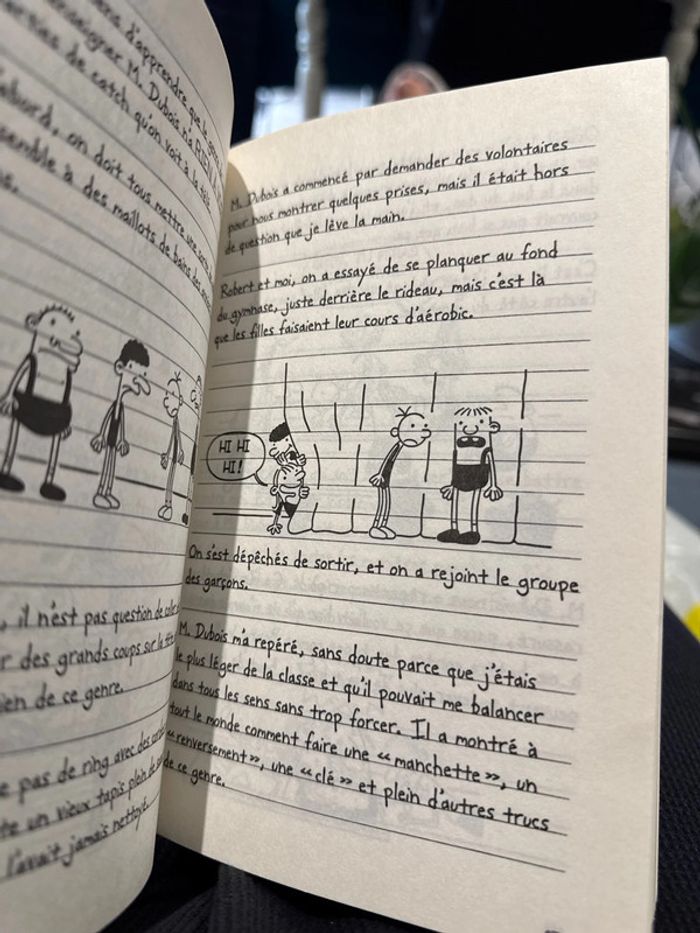 d'apprendre que le
enseigner M. Dubois n'a RIEN
de catch qu'on voit à la télé
on doit tous mettre une
semble à des maillots de bains des
il n'est pas question de
des grands coups sur la
de ce genre.
pas de ring avec des
un vieux tapis plein de
l'avait jamais nettoyé.
M. Dubois a commencé par demander des volontaires
pour nous montrer quelques prises, mais il était hors
de question que je lève la main.
Robert et moi, on a essayé de se planquer au fond
du gymnase, juste derrière le rideau, mais c'est là
que les filles faisaient leur cours d'aérobic.
HI HI
HI!
On s'est dépêchés de sortir, et on a rejoint le groupe
des garçons.
M. Dubois m'a repéré, sans doute parce que j'étais
le plus léger de la classe et qu'il pouvait me balancer
dans tous les sens sans trop forcer. Il a montré à
tout le monde comment faire une « manchette », un
« renversement », une « clé » et plein d'autres trucs
de ce genre.